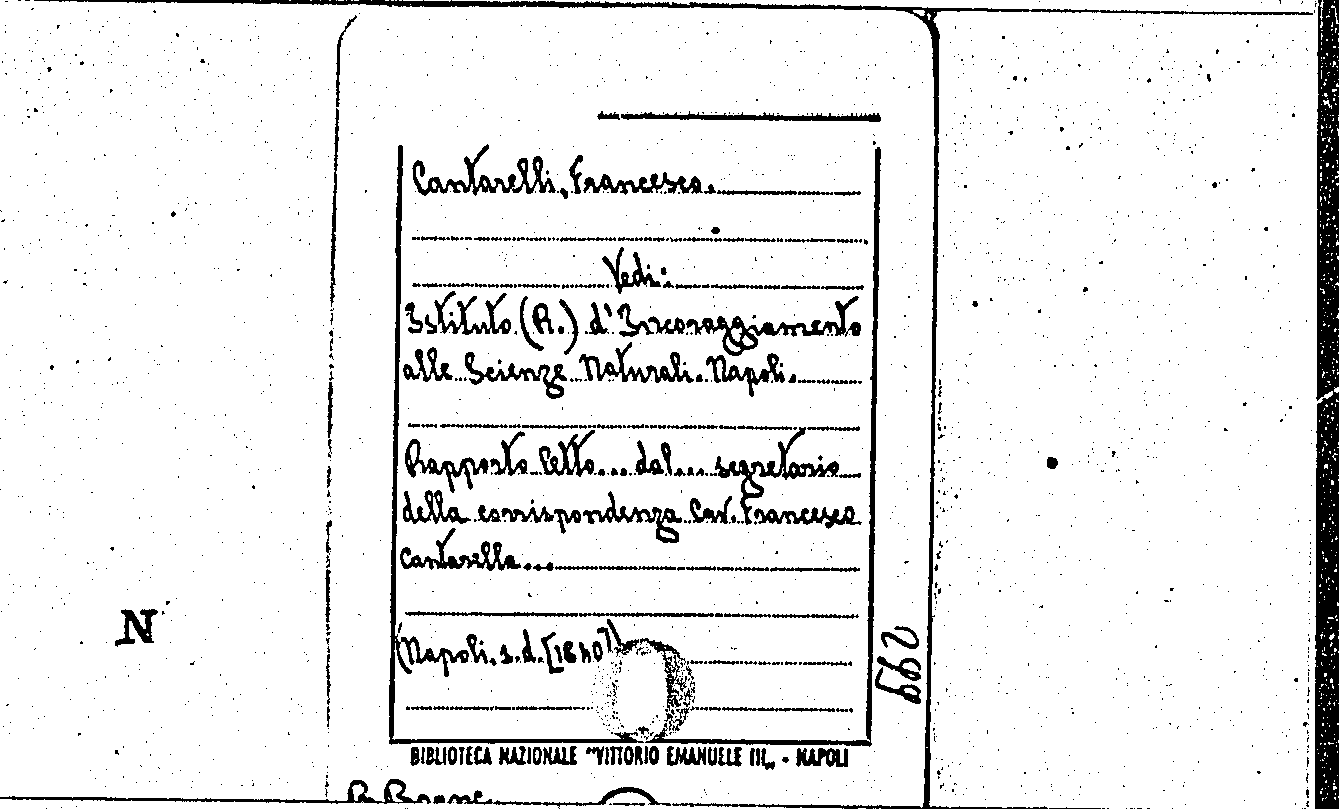 Cantarelli, Francesco.
Vedi:
Istituto (R.) d'Incoraggiamento
alle Scienze Naturali. Napoli.
Rapporto letto... dal... segretario
della corrispondenza Cav. Francesco
Cantarella...
(Napoli, s.d. [1840])
299
N
BIBLIOTECA NAZIONALE "VITTORIO EMANUELE III„ - NAPOLI